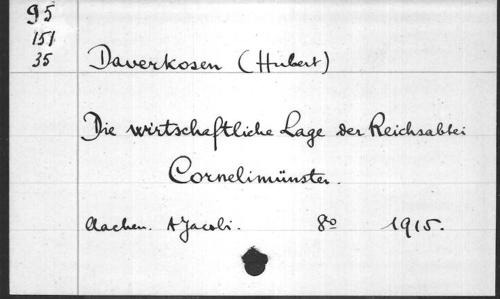 95
151
35
Daverkosen (Hubert)
Die wirtschaftliche Lage der Reichsabtei
Cornelimünster.
Aachen. A Jacobi. 8o 1915.